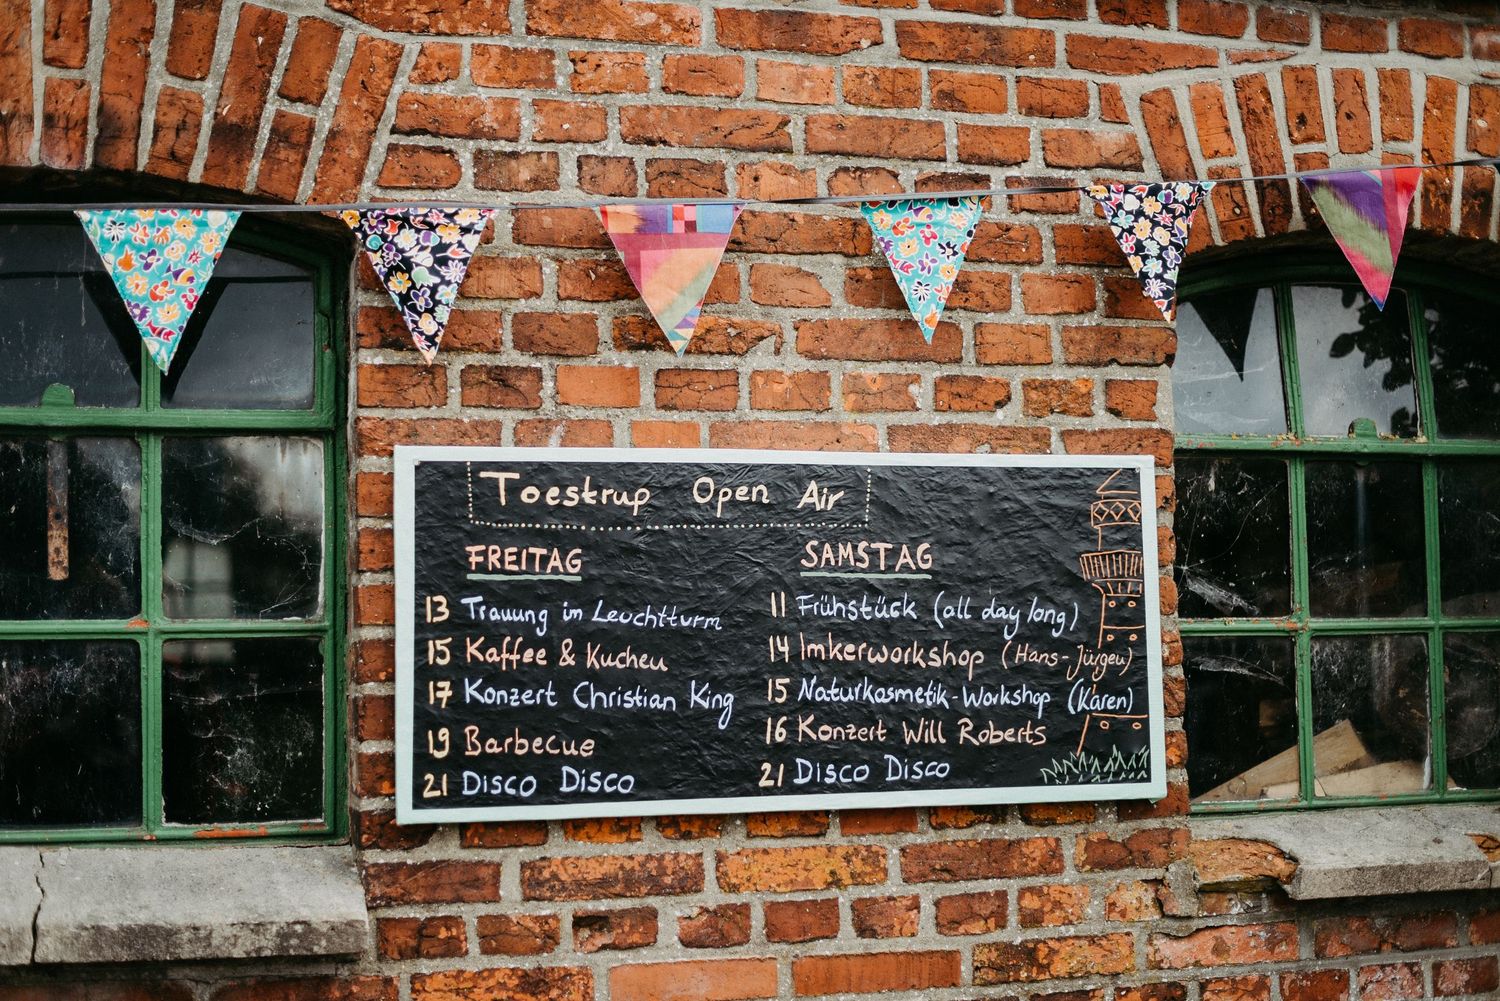 Toestrup Open Air
FREITAG
13 Trauung im Leuchtturm
15 Kaffee & Kuchen
17 Konzert Christian King
19 Barbecue
21 Disco Disco
SAMSTAG
11 Frühstück (all day long)
14 Imkerworkshop (Hans-Jürgen)
15 Naturkosmetik-Workshop (Karen)
16 Konzert Will Roberts
21 Disco Disco